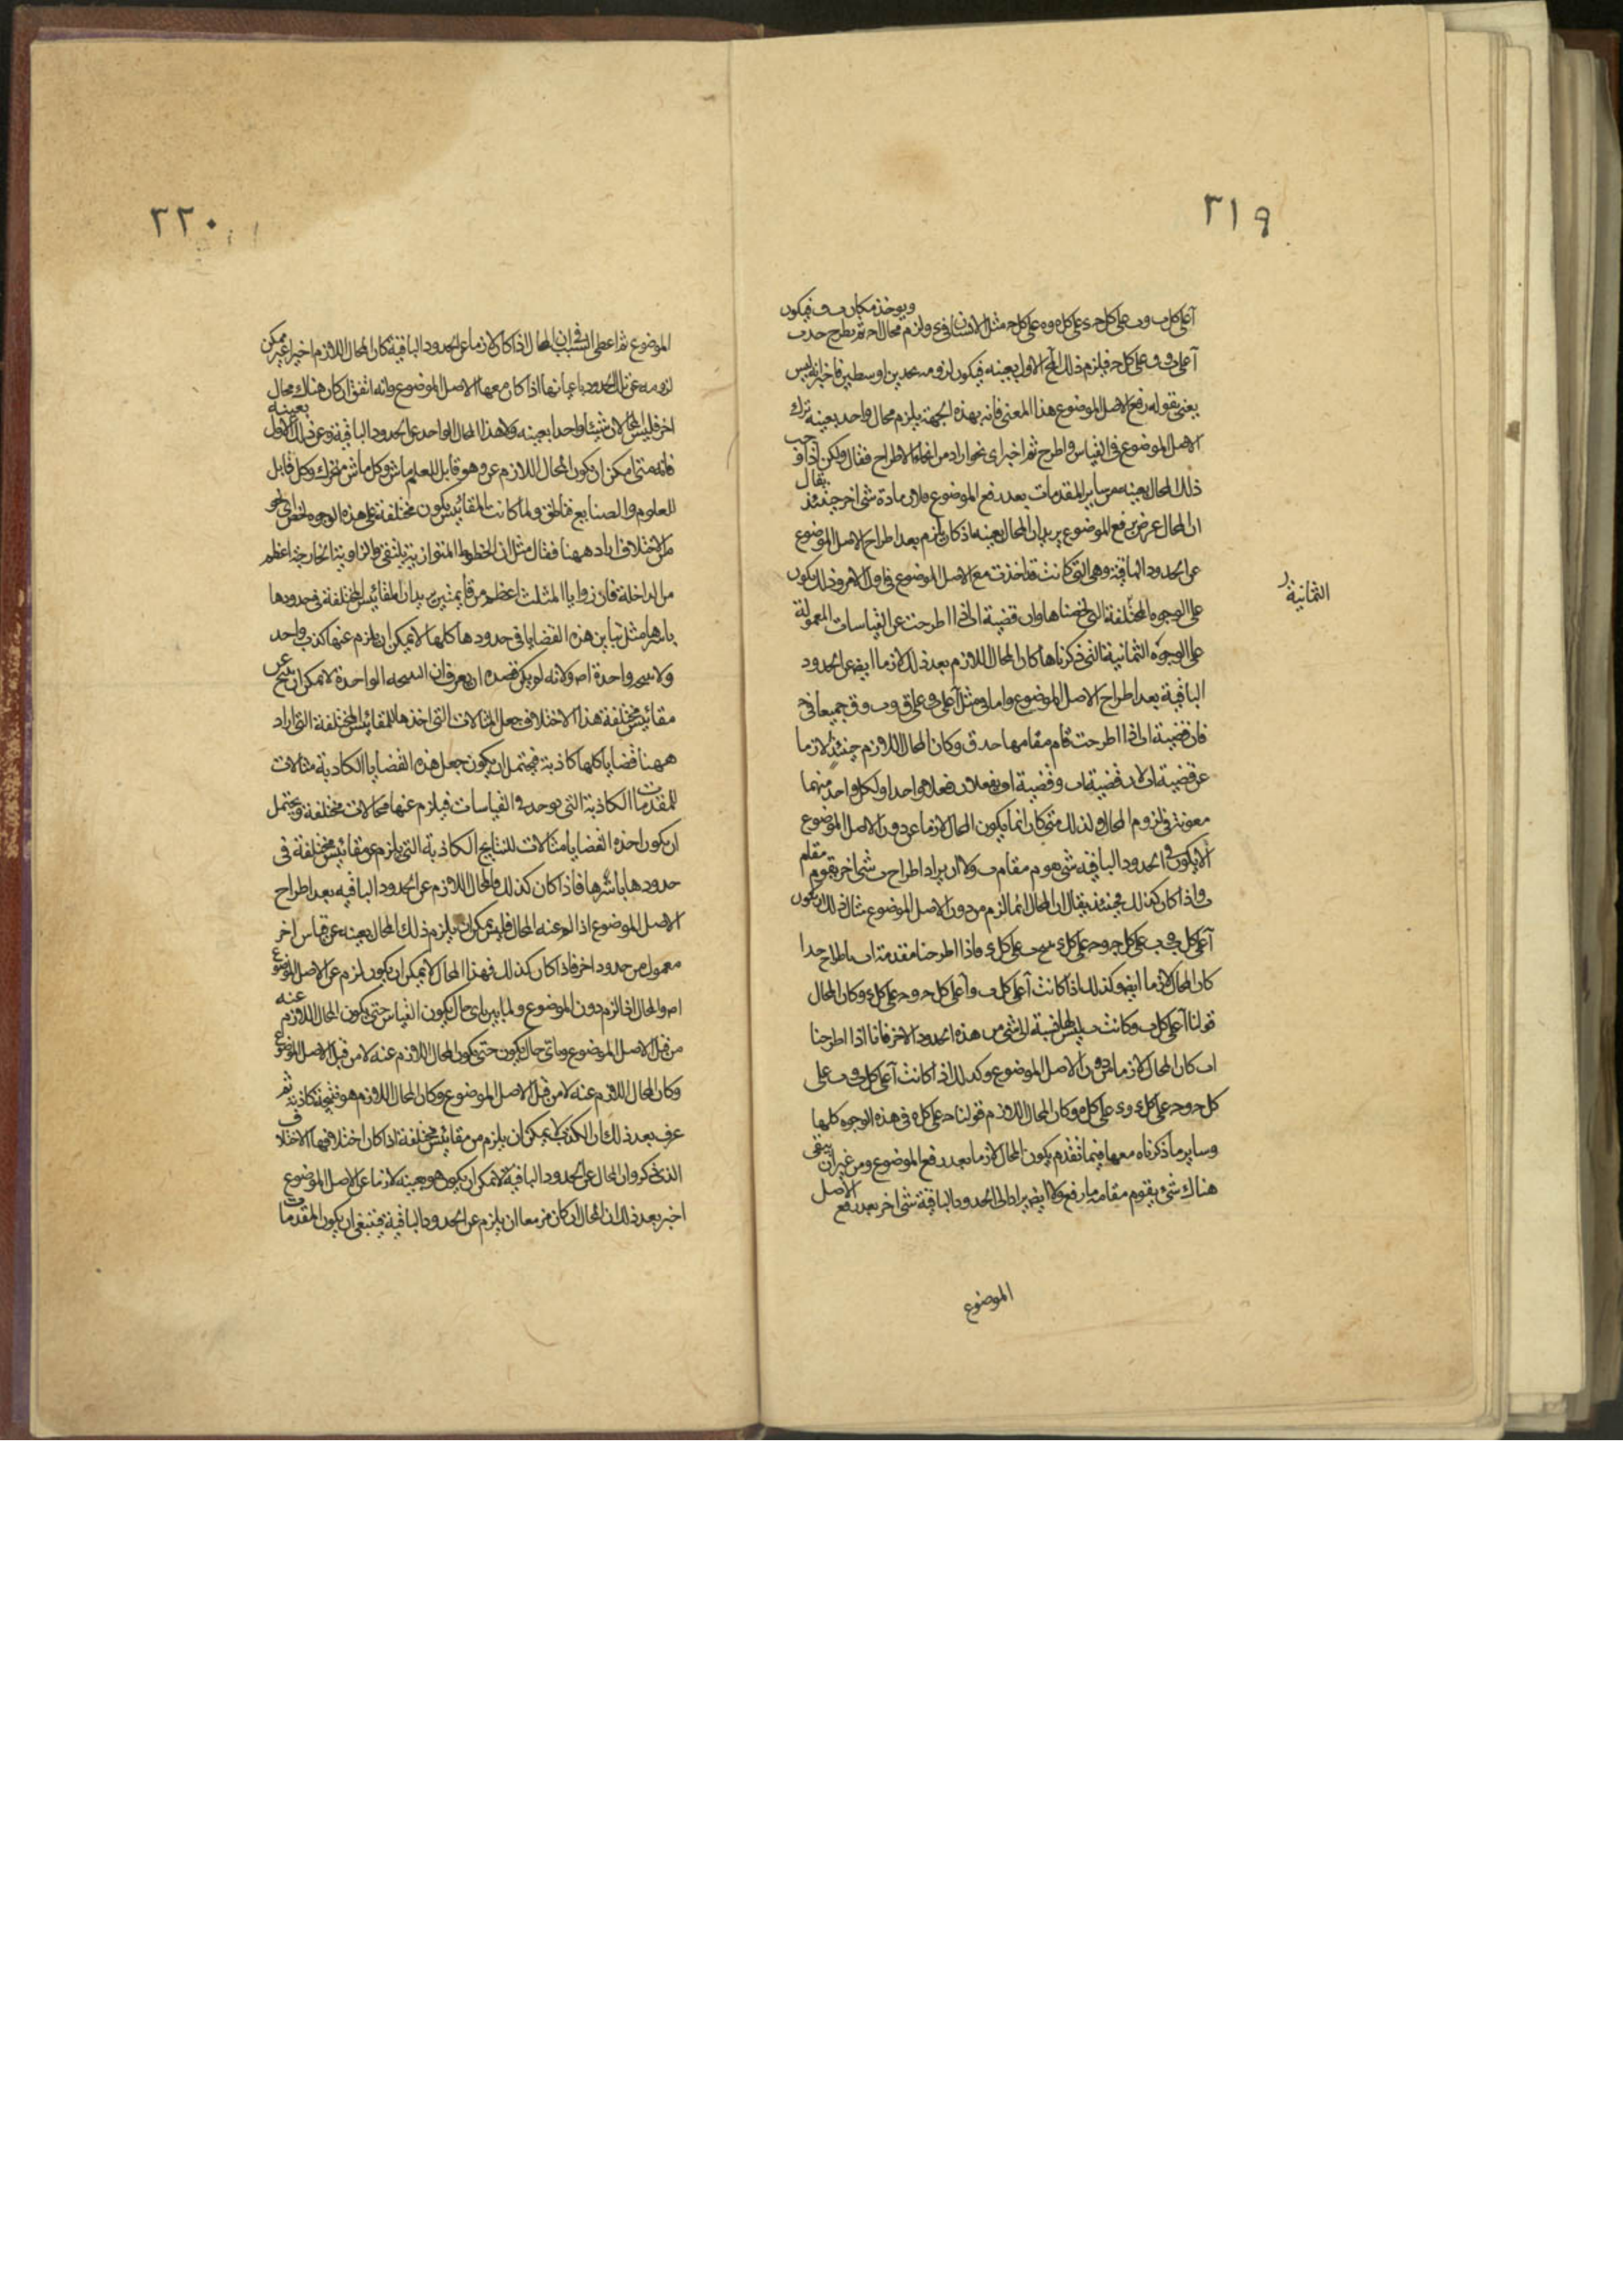 ٣١٩
ويوخذ مكان ب ف فيكون
آ على كل ب وب على كل ح وح على كل ه وه على كل مثل الانسان في ولزم محال ا ح ثم يطرح حد ب
آ على ف وف على كل ح فيلزم ذلك المح الاول بعينه فيكون لزومه بحدين اوسطين فاخبر انه ليس
يعنى بقوله رفع الاصل الموضوع هذا المعنى فانه بهذه الجهة يلزم محال واحد بعينه ترك
الاصل الموضوع في القياس واطرح ثم اخبر اى نحو اراد من انحاء الاطراح فقال ولكن اذا وجب
ذلك المحال بعينه من ساير المقدمات بعد رفع الموضوع بلا زيادة شى اخر حينئذ يقال
ان المحال عرض برفع الموضوع يريد ان المحال بعينه اذ كان يلزم بعد اطراح الاصل الموضوع
عن الحدود الباقية وهى التى كانت قد اخذت مع الاصل الموضوع في اول الامر وذلك يكون
على الوجوه المختلفة التى لخصناها وان قضية ا ب اذا اطرحت عن القياسات المعمولة
الثمانية
على الوجوه الثمانية التى ذكرناها كان المحال اللازم بعد ذلك لازما ايضا عن الحدود
الباقية بعد اطراح الاصل الموضوع واما في مثل آ على ق وب وق جميعا في ح
فان قضية ا ب اذا اطرحت قام مقامها حد ق وكان المحال اللازم حينئذ لازما
عن قضية ا ق لان قضية ا ب وقضية ا ق يفعلان فعلا واحدا ولكل واحد منهما
معونة في لزوم المحال ولذلك متى كان انما يكون المحال لازما عن دون الاصل الموضوع
الا يكون في الحدود الباقية شى هو م مقام ب ولا ان يراد اطراح ب شى اخر يقوم مقام
ب واذا كان كذلك فحينئذ يقال ان المحال انما لزم من دون الاصل الموضوع مثال ذلك ان يكون
كان المحال لازما ايضا وكذلك اذا كانت آ على كل ب وآ على كل ح وح على كل ى وكان المحال
قولنا آ على كل ب وكانت ب ليس لها نسبة الى شى من هذه الحدود الاخر فانا اذا اطرحنا
ا ب كان المحال لازما من دون الاصل الموضوع وكذلك اذا كانت آ على كل ب وب على
كل ح وح على كل ى وى على كل ه وكان المحال اللازم قولنا ح على كل ه في هذه الوجوه كلها
وساير ما ذكرناه معها فيما تقدم يكون المحال لازما بعد رفع الموضوع ومن غير ان يبقى
هناك شى يقوم مقام ما رفع ولا ايضا يراد الى الحدود الباقية شى اخر بعد رفع الاصل
الموضوع
٣٢٠
الموضوع ثم اعطى السبب في ان المحال اذا كان لازما عن الحدود الباقية كان المحال اللازم اخيرا غير ممكن
لزومه عن تلك الحدود باعيانها اذا كان معها الاصل الموضوع وانه اتفق ان كان هناك محال
اخر فليس المحالان شيئا واحدا بعينه ولا هذا المحال الواحد عن الحدود الباقية وعن ذلك الاول بعينه
فانه متى امكن ان يكون المحال اللازم عن وهو قابل للعلم ماش وكل ماش متحرك وكل قابل
للعلوم والصنايع فناطق ولما كانت المقائيس يكون مختلفة على هذه الوجوه لخص اى نحو
من الاختلاف اراد ههنا فقال مثل ان الخطوط المتوازية يلتقى والزاوية الخارجة اعظم
من الداخلة فان زوايا المثلث اعظم من قائمتين يريد ان المقائيس المختلفة في حدودها
باسرها مثل تباين هذه القضايا في حدودها كلها لا يمكن ان يلزم عنها كذب واحد
ولا نتيجة واحدة اص ولانه لو يكن قصده ان يعرف ان النتيجة الواحدة لا يمكن ان ينتج عن
مقائيس مختلفة هذا الاختلاف جعل المحالات التى اخذها للمقائيس المختلفة التى اراد
ههنا قضايا كلها كاذبة فيحتمل ان يكون جعل هذه القضايا الكاذبة مثالات
للمقدمات الكاذبة التى توجد في القياسات فيلزم عنها محالات مختلفة ويحتمل
ان يكون اخذ هذه القضايا مثالات للنتايج الكاذبة التى يلزم عن مقائيس مختلفة في
حدودها باسرها فاذا كان كذلك والمحال اللازم عن الحدود الباقية بعد اطراح
الاصل الموضوع اذا لزم عنه المحال فليس يمكن ان يلزم ذلك المحال بعينه عن قياس اخر
معمول من حدود اخر فاذا كان كذلك فهذا المحال لا يمكن ان يكون لزم عن الاصل الموضوع
اص والمحال اذا لزم دون الموضوع ولما بين باى حال يكون القياس حتى يكون المحال اللازم عنه
من قبل الاصل الموضوع وباى حال يكون حتى يكون المحال اللازم عنه لا من قبل الاصل الموضوع
وكان المحال اللازم عنه لا من قبل الاصل الموضوع وكان المحال اللازم هو نتيجة كاذبة ثم
عرف بعد ذلك ان الكذب يمكن ان يلزم من مقائيس مختلفة اذا كان اختلافها الاختلاف
الذى ذكر وان المحال عن الحدود الباقية لا يمكن ان يكون هو بعينه لازما عن الاصل الموضوع
اخبر بعد ذلك ان المحال ان كان مزمعا ان يلزم عن الحدود الباقية فينبغى ان يكون المقدمات